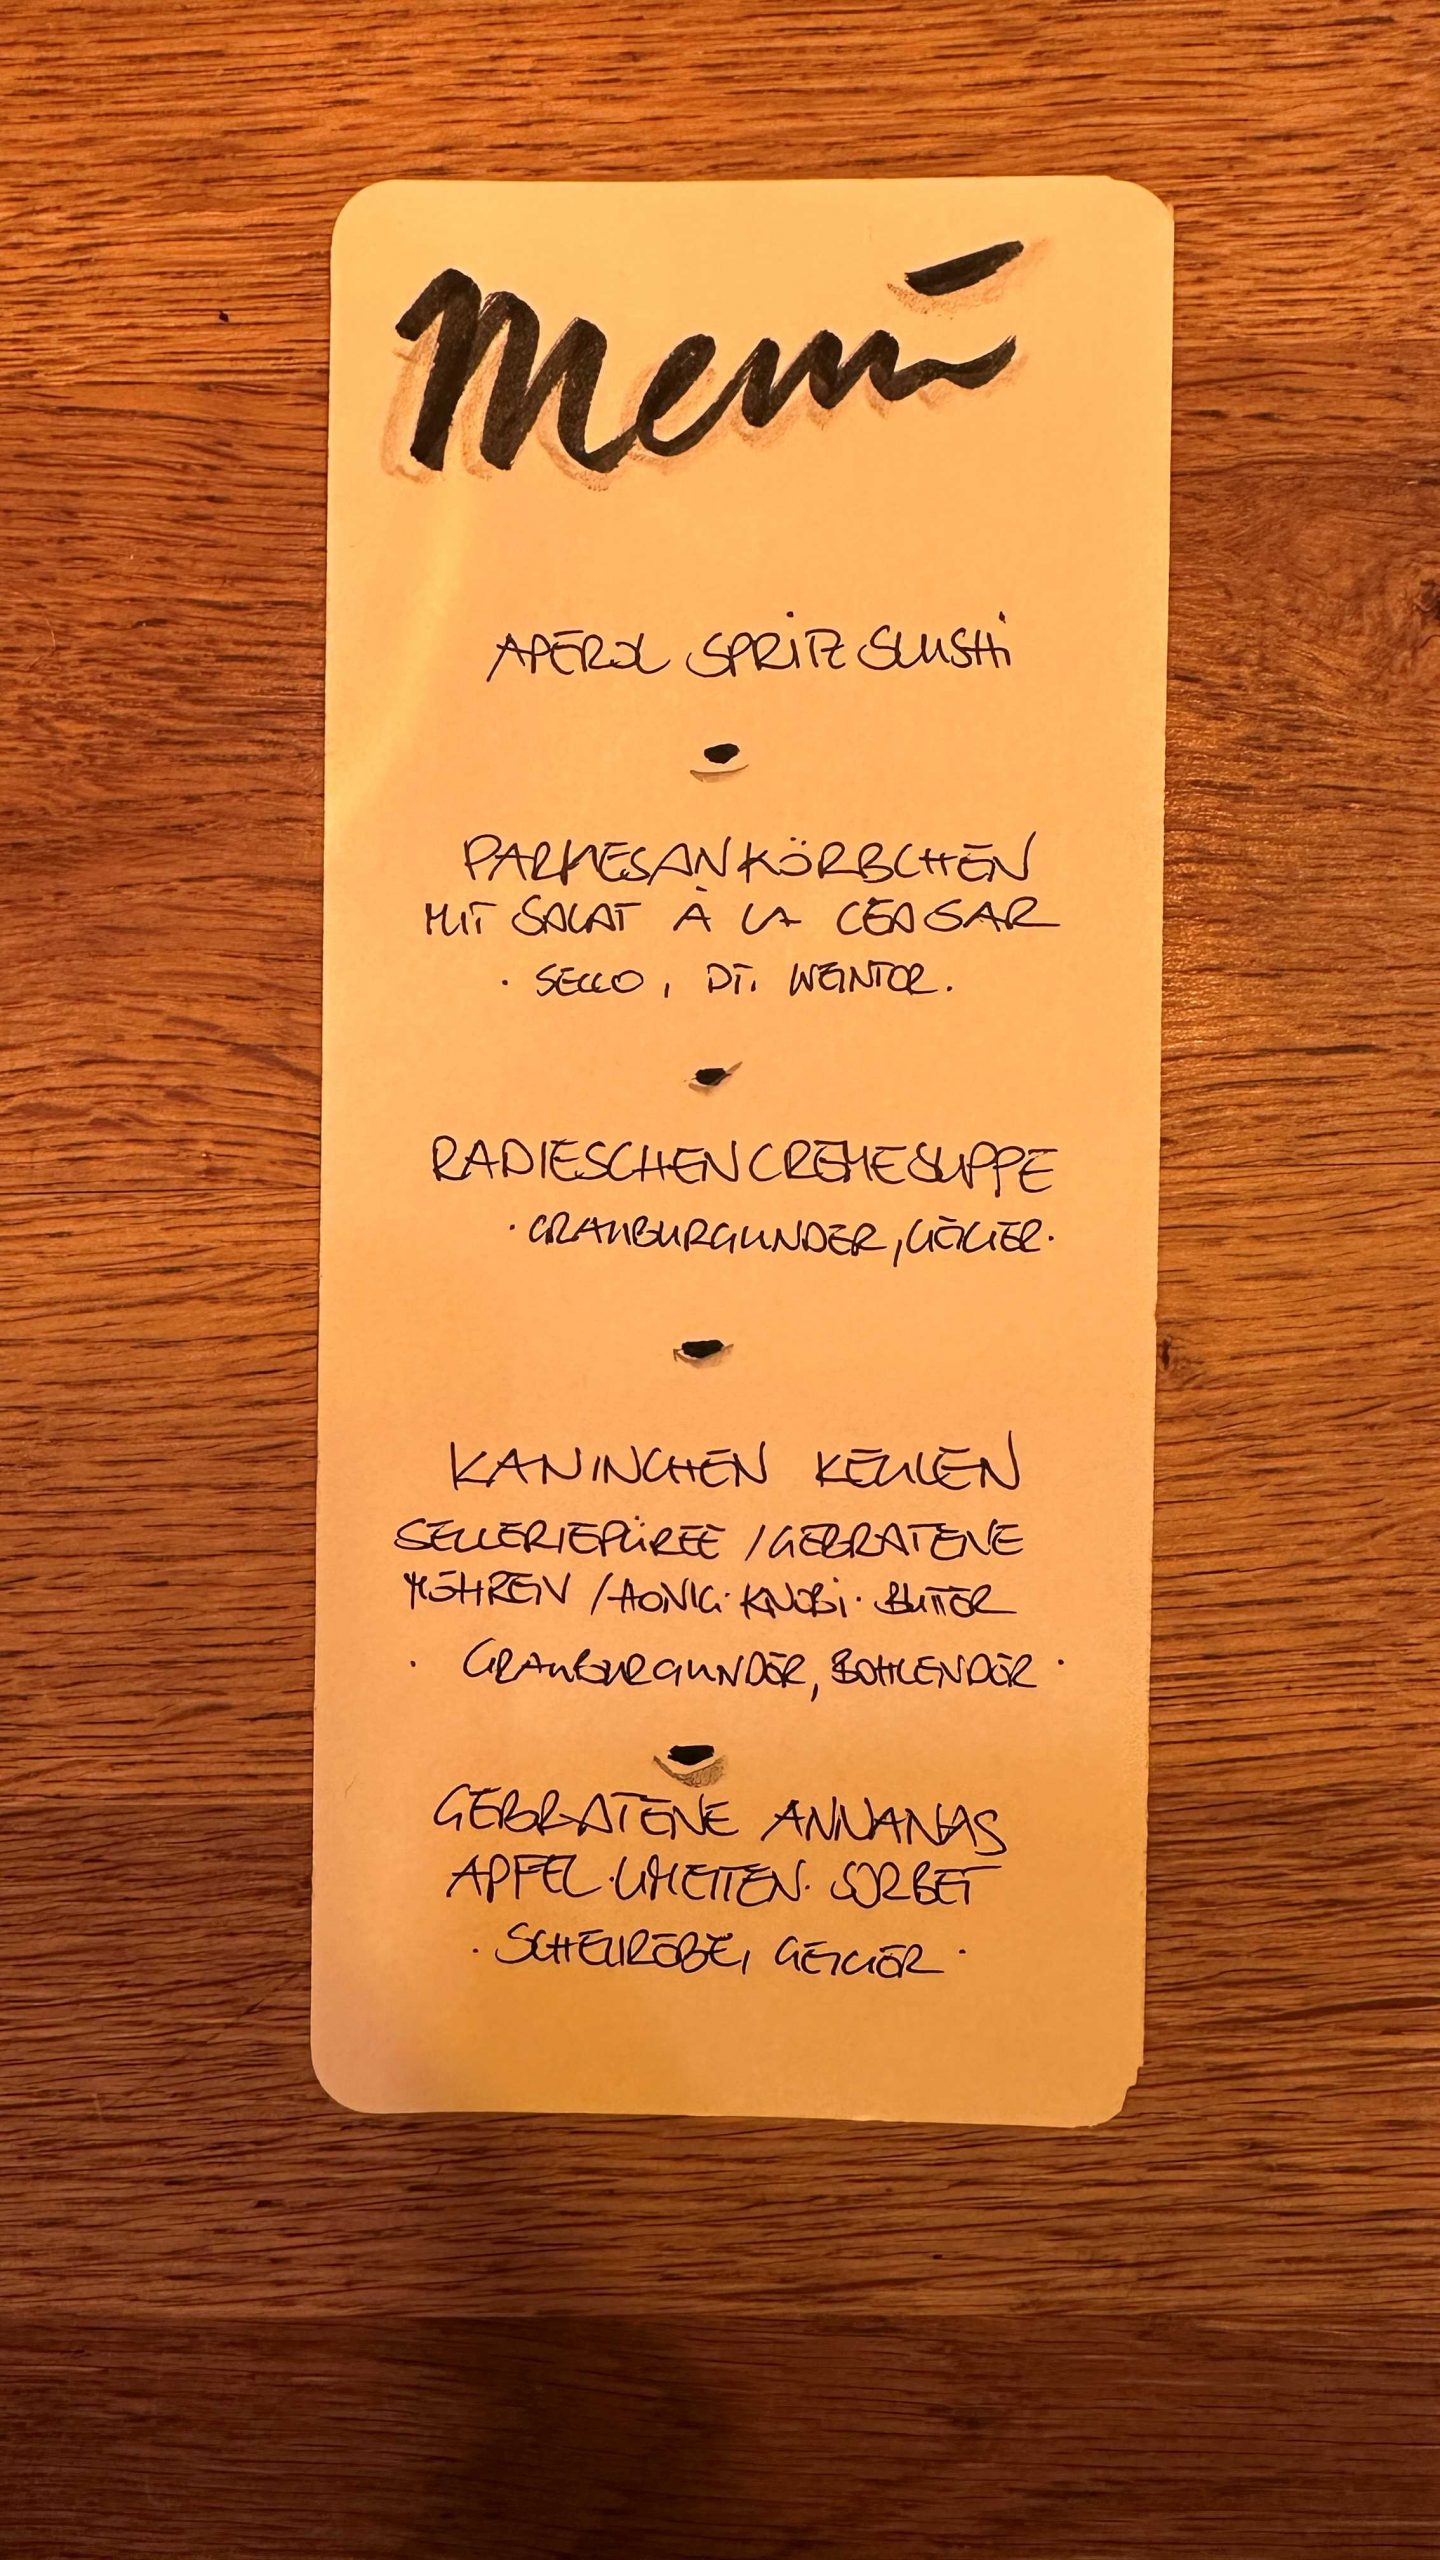 Menü
APEROL SPRITZ SLUSHi
PARMESANKÖRBCHEN
MIT SALAT À LA CEASAR
· SECCO, DT. WEINTOR.
RADIESCHENCREMESUPPE
· GRAUBURGUNDER, GEIGER·
KANINCHEN KEULEN
SELLERIEPÜREE / GEBRATENE
MÖHREN / HONIG·KNOBi·BUTTER
· GRAUBURGUNDER, BOHLENDER ·
GEBRATENE ANNANAS
APFEL·LIMETTEN·SORBET
· SCHEUREBE, GEIGER ·